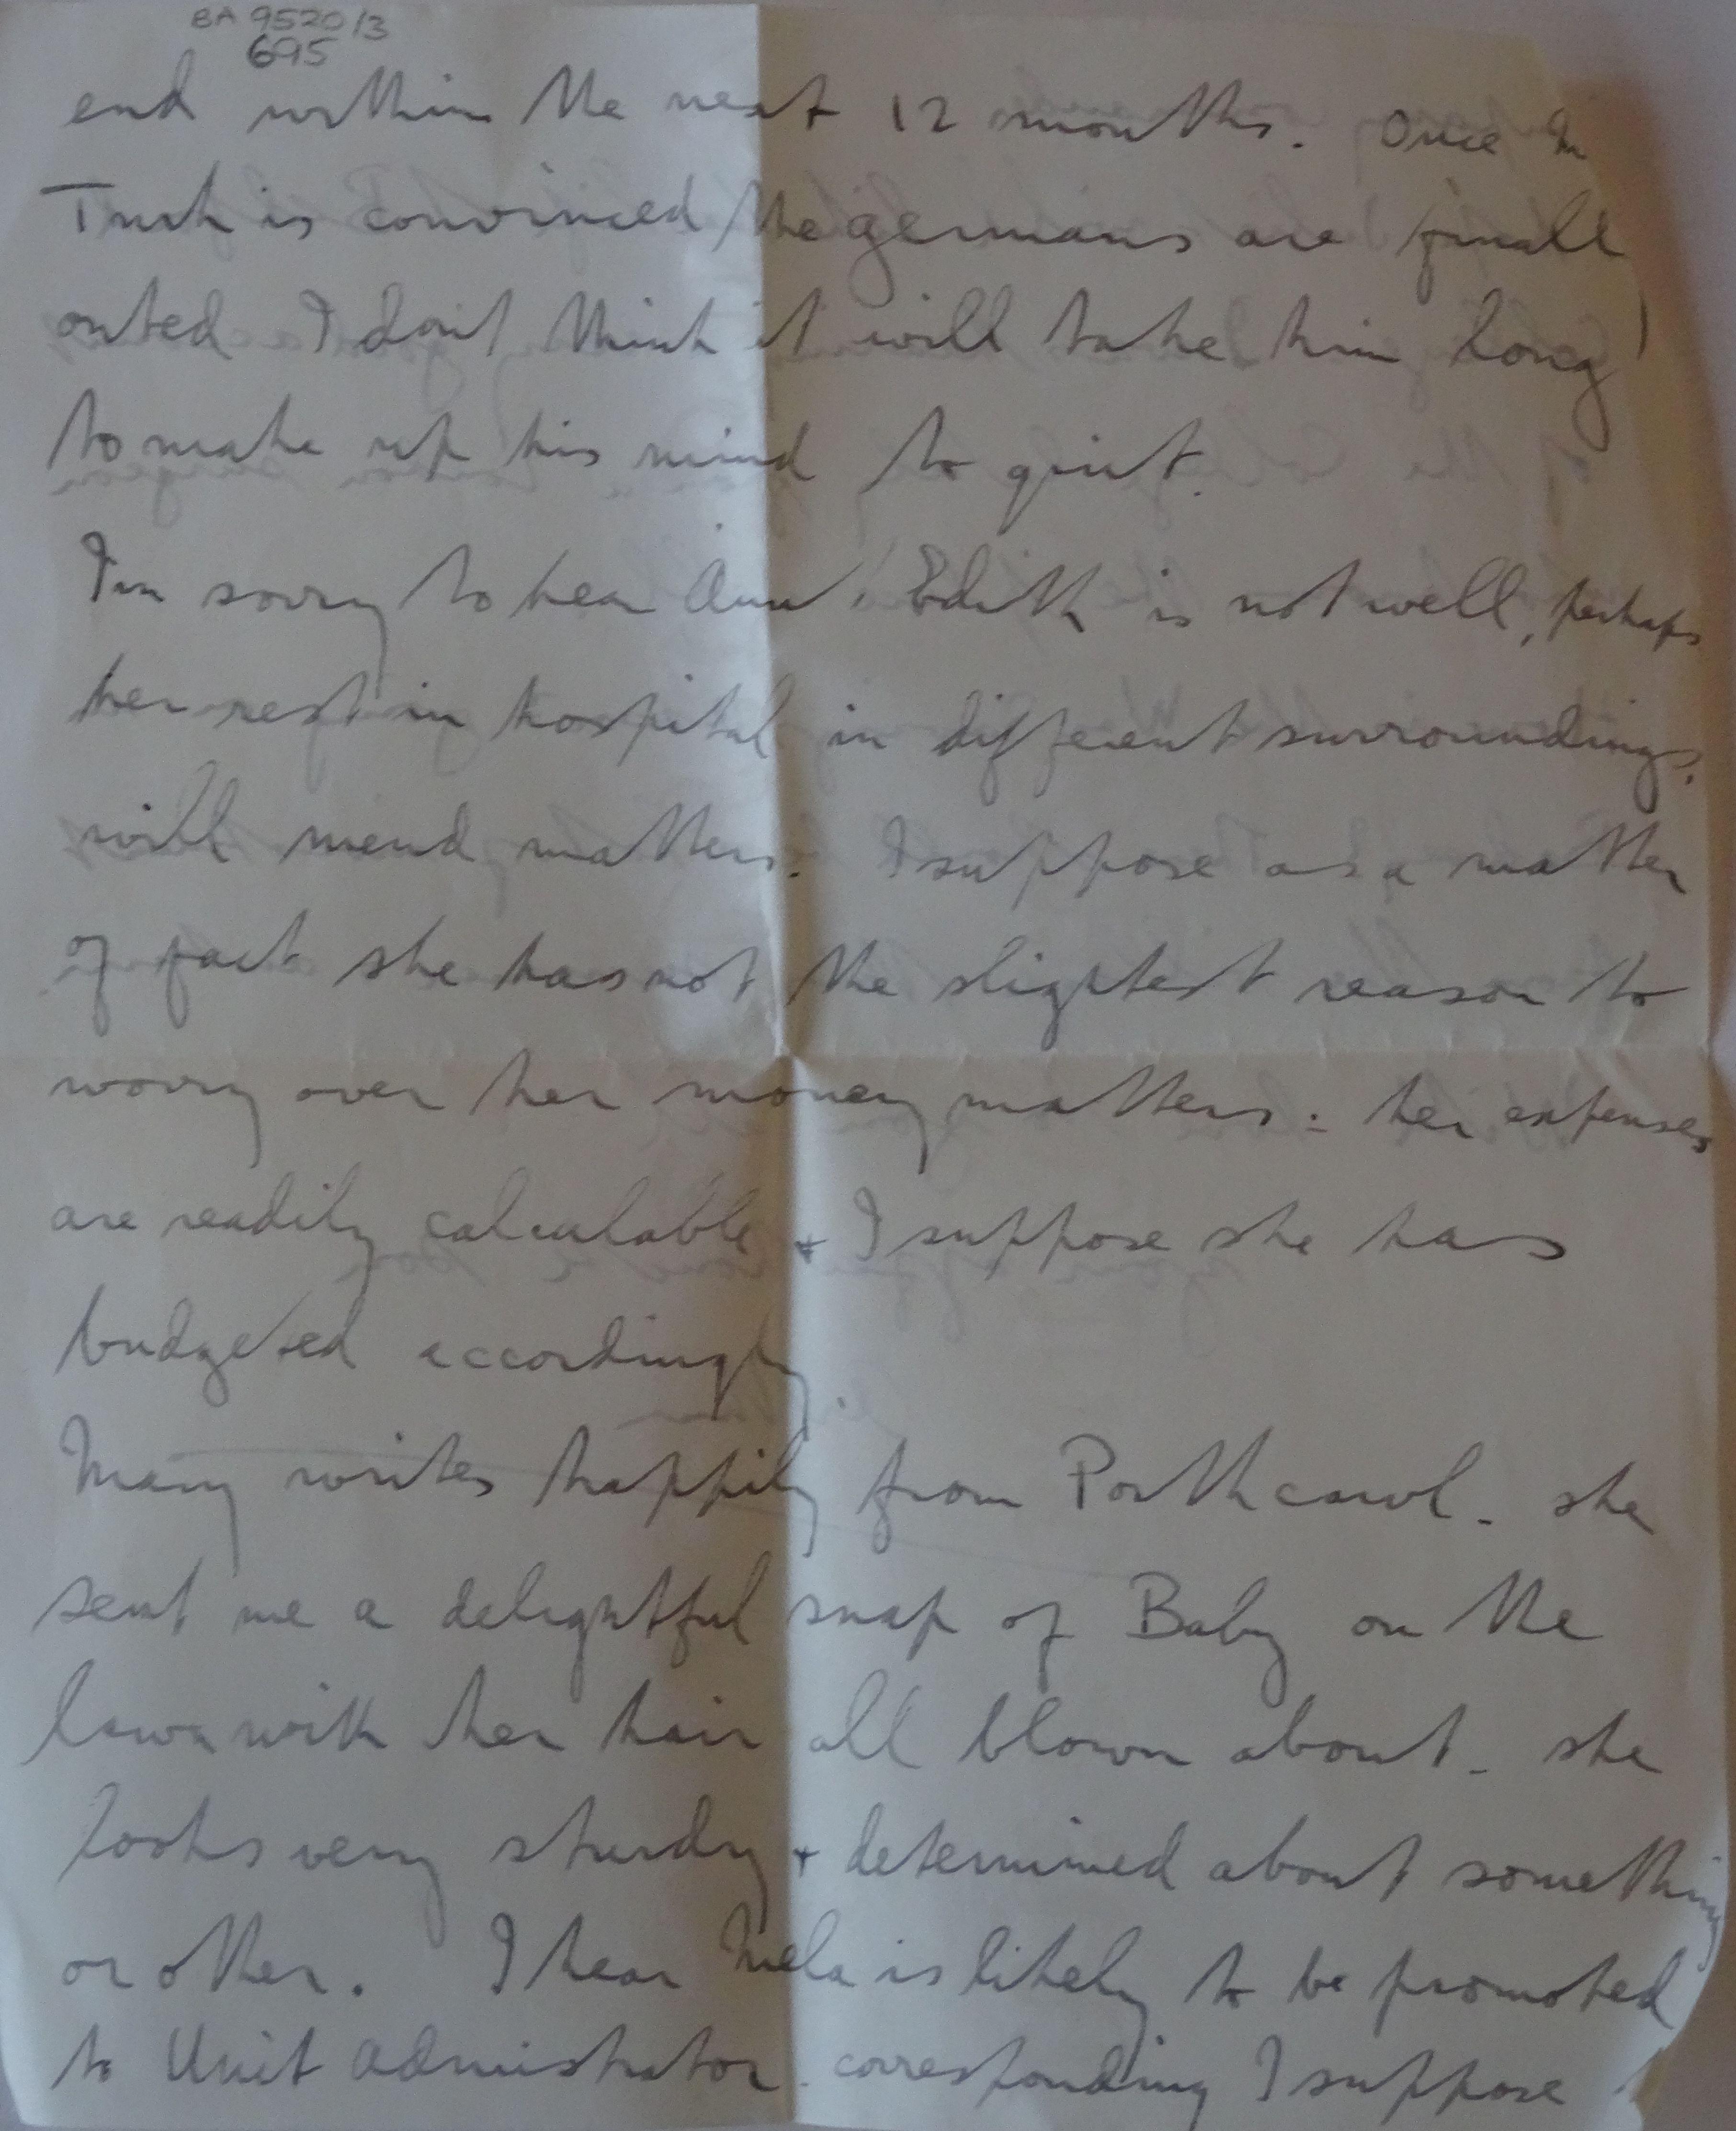 BA 9520/3
695
end within the next 12 months. Once
Turk is convinced the germans are finall
outed I don't think it will take him long
to make up his mind to quit.
I'm sorry to hear Aun Edith is not well, perhaps
her rest in hospital in different surroundings.
will mend matters. I suppose as a matter
of fact she has not the slightest reason to
worry over her money matters: her expenses
are readily calculable + I suppose she has
budgeted accordingly.
Mary writes happily from Porthcawl. she
sent me a delightful snap of Baby on the
lawn with her hair all blown about. she
looks very sturdy + determined about something
or other. I hear Mela is likely to be promoted
to Unit Admistrator. corresponding I suppose